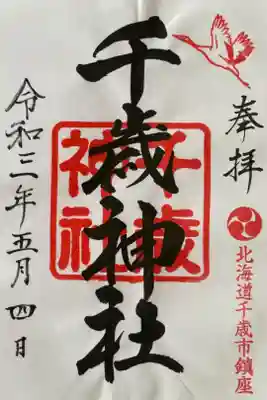 奉拝
北海道千歳市鎮座
千歳神社
千歳
神社
令和三年五月四日